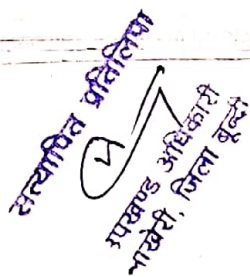 सत्यापित प्रतिलिपी
उपखण्ड अधिकारी
लाखेरी, जिला बून्दी